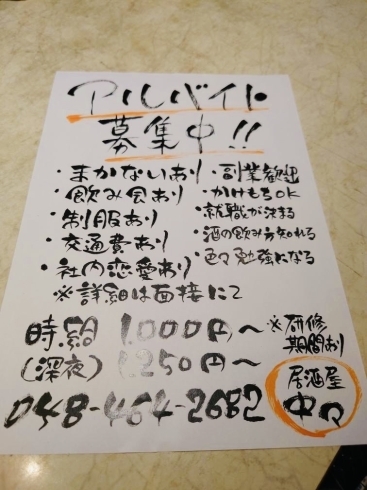 アルバイト
募集中!!
・まかないあり
・飲み会あり
・制服あり
・交通費あり
・社内恋愛あり
・副業歓迎
・かけもちOK
・就職が決まる
・酒の飲み方知れる
・色々勉強になる
※詳細は面接にて
時給 1,000円〜
(深夜) 1,250円〜
※研修
期間あり
048-464-2682
居酒屋
中々